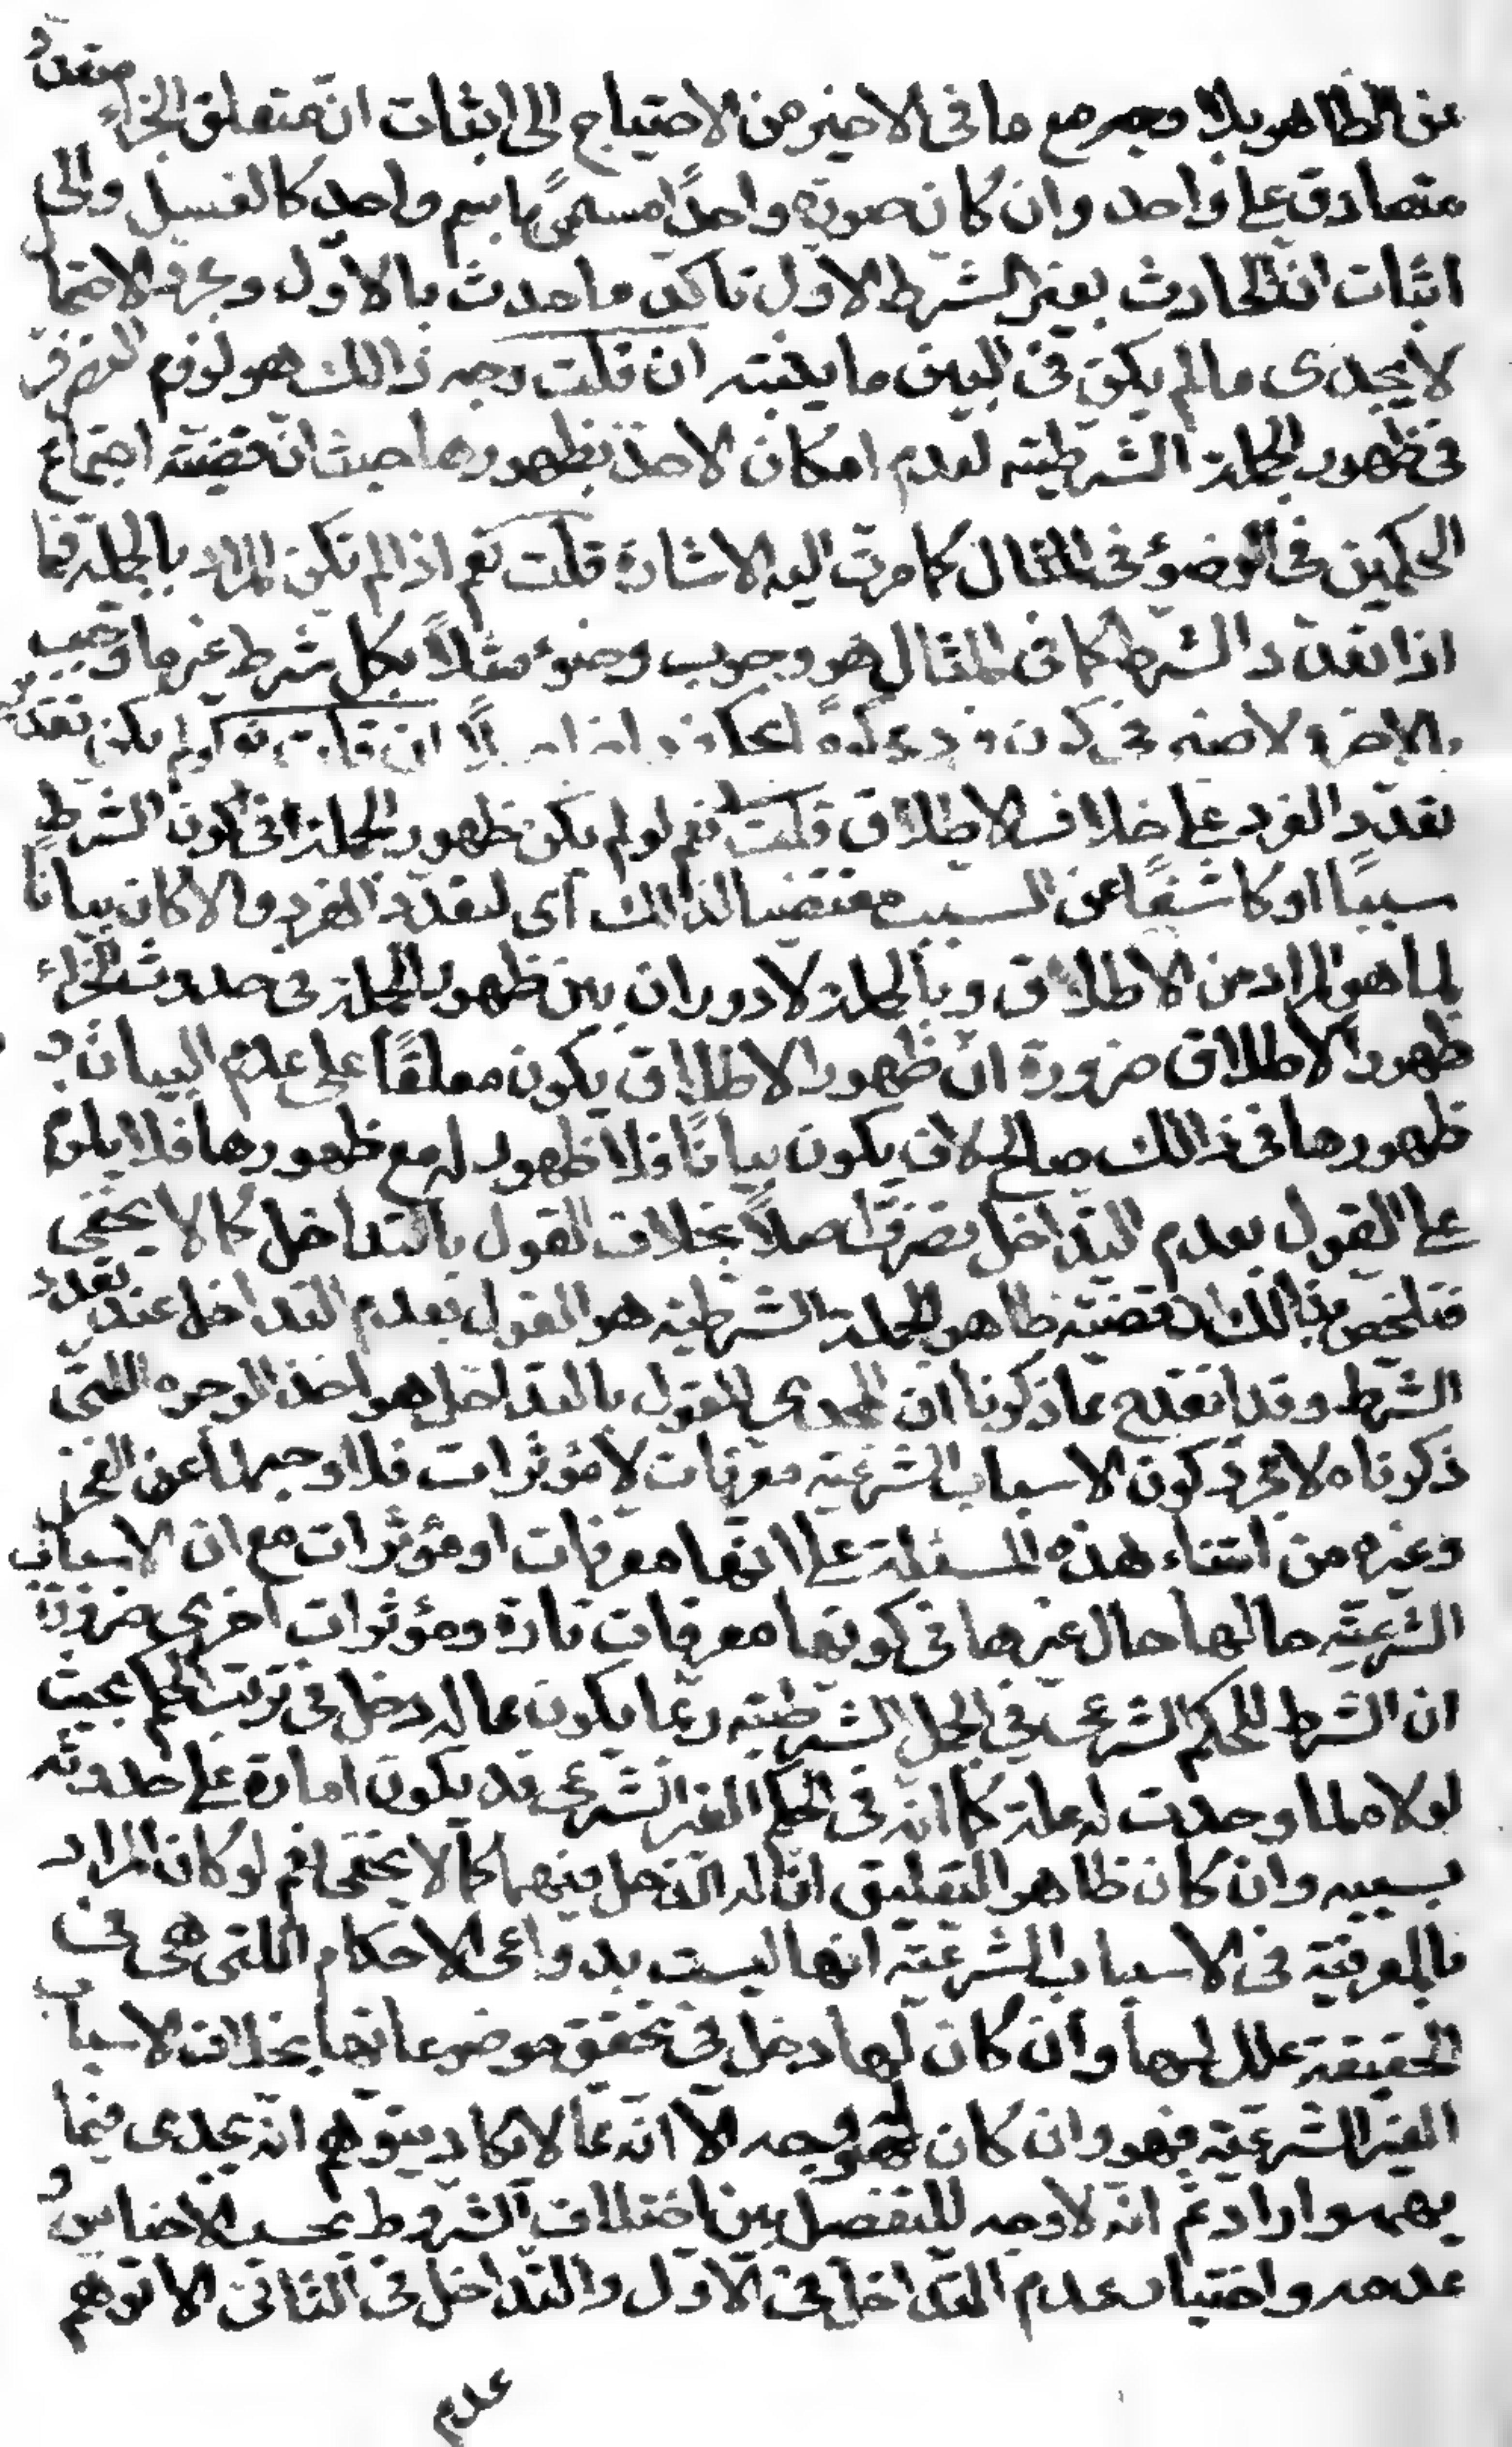 عن الظاهر بلا وجه مع ما فى الاخير من الاحتياج الى اثبات ان متعلق الجزاء متعدد
متصادق على واحد وان كان صورة واحدًا مسمىً باسم واحد كالغسل والى
اثبات ان الحادث بغير الشرط الاول تاكد ما حدث بالاول ومجرد الاحتما
لا يجدى ما لم يكن فى البين ما يثبته ان قلت وجه ذالك هو لزوم التصرف
فى ظهور الجملة الشرطية لعدم امكان الاخذ بظهورها حيث ان قضيته اجتماع
الحكمين فى الوضوء فى المثال كما مرت اليه الاشارة قلت نعم اذا لم تكن المراد بالجملة فيما
اذا تعدد الشرط كما فى المثال هو وجوب وضوء مثلاً بكل شرط غير ما وجب
بالاخر ولا ضير فى كون فرد محكومًا بحكم فرد اخر اصلاً ان قلت نعم لو لم يكن تقدير
تعدد الفرد على خلاف الاطلاق قلت نعم لو لم يكن ظهور الجملة فى كون الشرط
سببًا او كاشفًا عن السبب مقتضيا لذالك اى لتعدد الفرد والا كان بيانًا
لما هو المراد من الاطلاق وبالجملة لا دوران بين ظهور الجملة فى حدوث الجزاء
ظهور الاطلاق ضرورة ان ظهور الاطلاق يكون معلقًا على عدم البيان و
ظهورها فى ذالك صالح لان يكون بيانًا فلا ظهور له مع ظهورها فلا يلزم
على القول بعدم التداخل تصرف اصلاً بخلاف القول بالتداخل كما لا يخفى
فتلخص بذالك ان قضية ظاهر الجملة الشرطية هو القول بعدم التداخل عند تعدد
الشرط وقد انقدح مما ذكرنا ان المجدى للقول بالتداخل هو احد الوجوه اللتى
ذكرناه لا مجرد كون الاسباب الشرعية معرفات لا مؤثرات فلا وجه لما عن الفخر
وغيره من ابتناء هذه المسئلة على انها معرفات او مؤثرات مع ان الاسباب
الشرعية حالها حال غيرها فى كونها معرفات تارة ومؤثرات اخرى ضرورة
ان الشرط للحكم الشرعى فى الجمل الشرطية ربما يكون مما له دخل فى ترتب الحكم بحيث
لولاه لما وجدت له علة كما انه فى الحكم الغير الشرعى قد يكون امارة على حدوثه
بسببه وان كان ظاهر التعليق ان له الدخل فيهما كما لا يخفى نعم لو كان المراد
بالمعرفية فى الاسباب الشرعية انها ليست بدواعى الاحكام اللتى هى فى
الحقيقة علل لها وان كان لها دخل فى تحقق موضوعاتها بخلاف الاسباب
الغير الشرعية فهو وان كان له وجه الا انه مما لا يكاد يتوهم انه يجدى فيما
يهم واراد ثم انه لا وجه للتفصيل بين اختلاف الشروط بحسب الاجناس و
عدمه واختيار عدم التداخل فى الاول والتداخل فى الثانى الا توهم
عدم